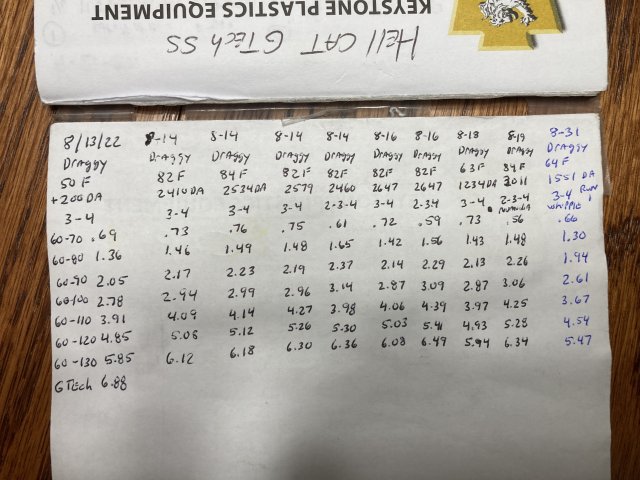 KEYSTONE PLASTICS EQUIPMENT
Hell CAT GTech SS
8/13/22 8-14 8-14 8-14 8-14 8-16 8-16 8-18 8-19 8-31
Draggy Draggy Draggy Draggy Draggy Draggy Draggy Draggy Draggy Draggy
50 F 82 F 84 F 82 F 82 F 82 F 82 F 63 F 84 F 64 F
+200 DA 2410 DA 2534 DA 2579 2460 2647 2647 1234 DA 3011 1551 DA
3-4 3-4 3-4 3-4 2-3-4 3-4 2-34 3-4 2-3-4 3-4 Run 1
whipple
60-70 .69 .73 .76 .75 .61 .72 .59 .73 .56 .66
60-80 1.36 1.46 1.49 1.48 1.65 1.42 1.56 1.43 1.48 1.30
60-90 2.05 2.17 2.23 2.19 2.37 2.14 2.29 2.13 2.26 1.94
60-100 2.78 2.94 2.99 2.96 3.14 2.87 3.09 2.87 3.06 2.61
60-110 3.91 4.09 4.14 4.27 3.98 4.06 4.39 3.97 4.25 3.67
60-120 4.85 5.08 5.12 5.26 5.30 5.03 5.41 4.93 5.28 4.54
60-130 5.85 6.12 6.18 6.30 6.36 6.08 6.49 5.94 6.34 5.47
GTech 6.88